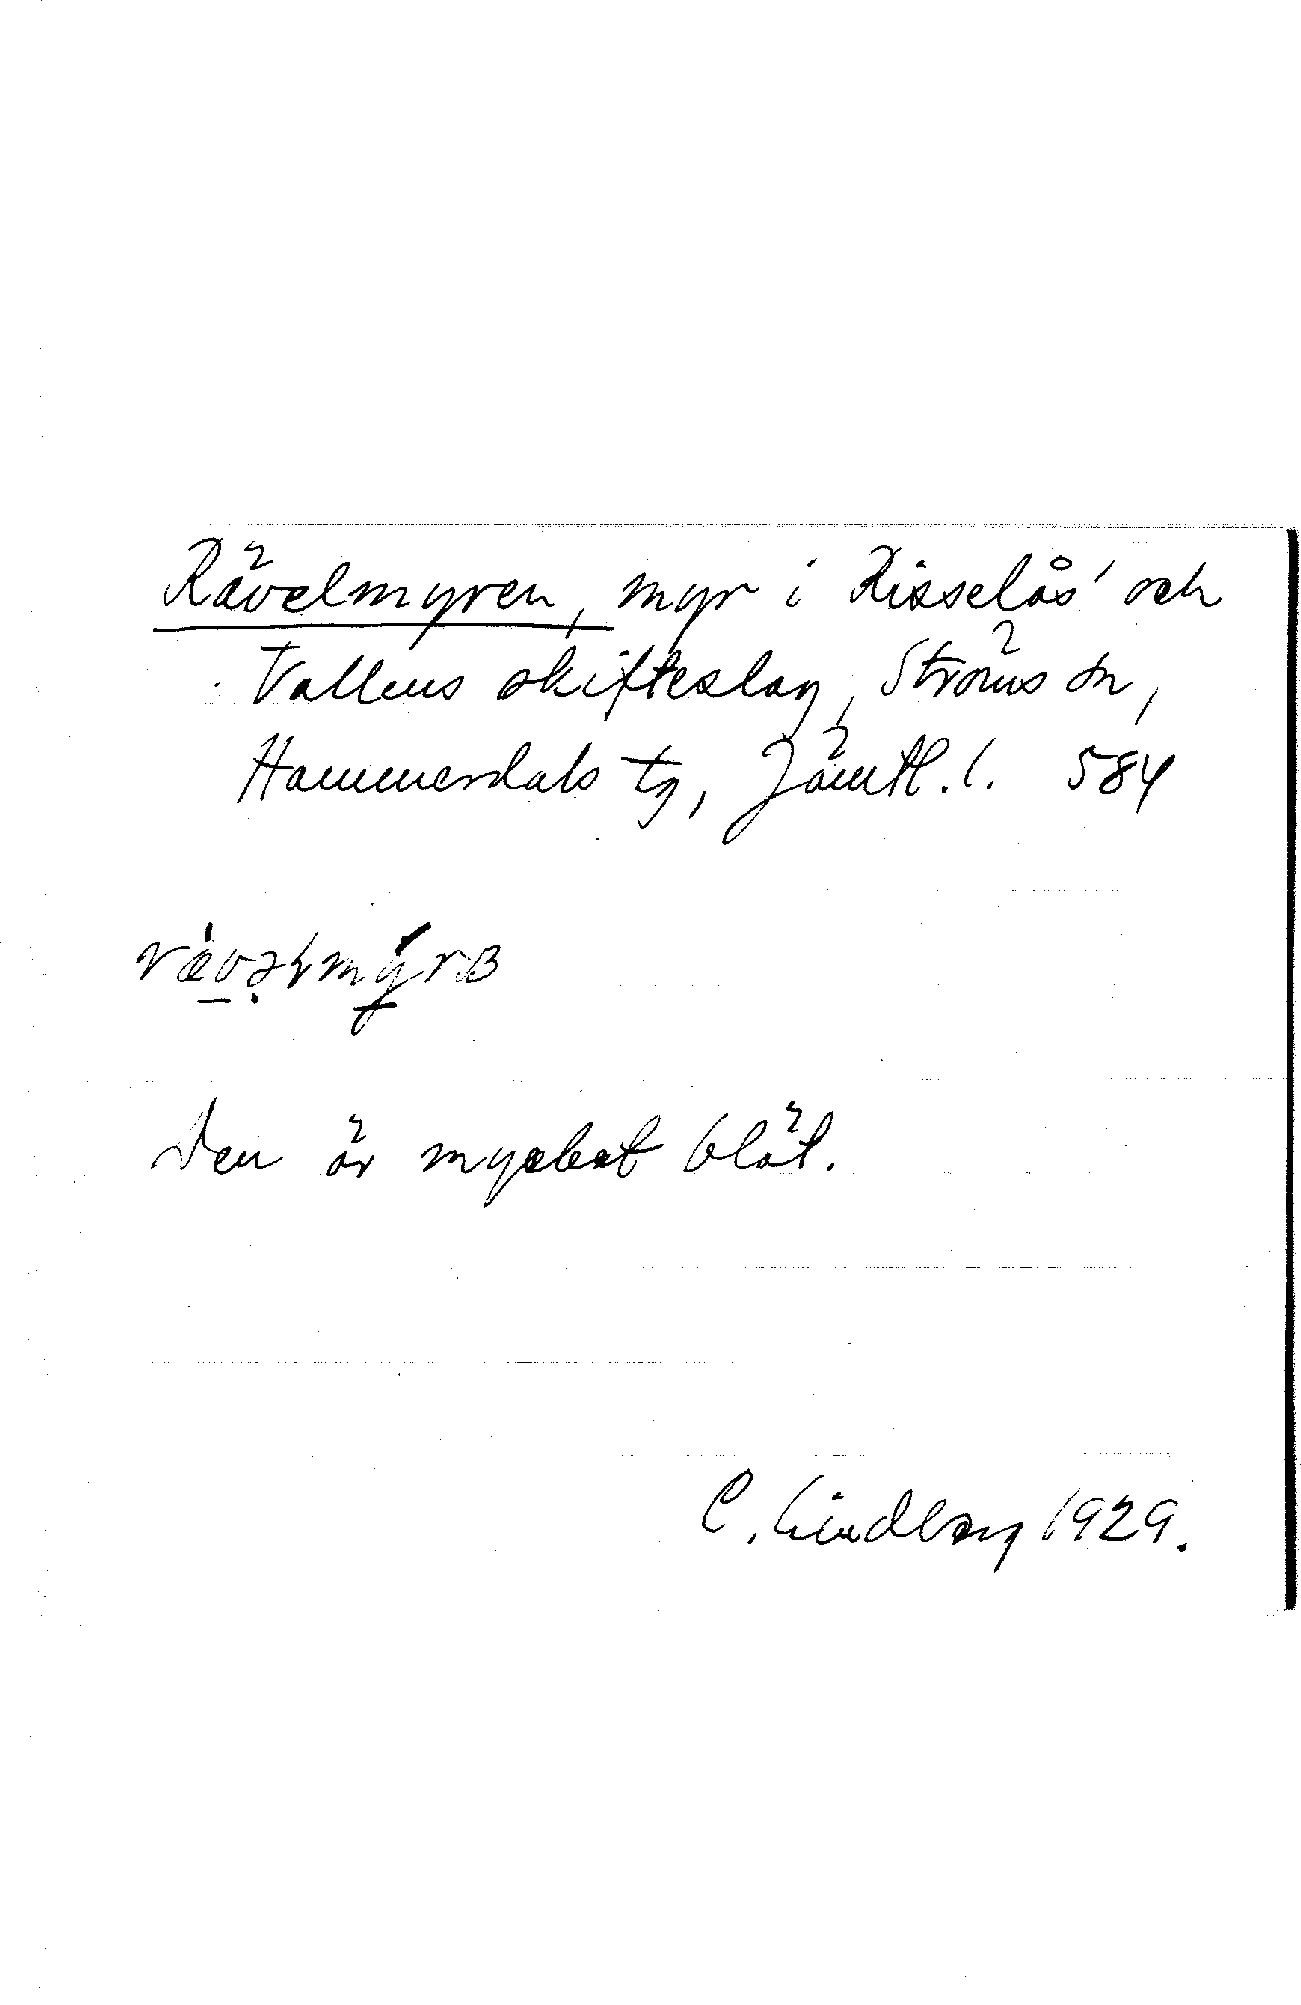 Rävelmyren, myr i Risselås' och
Vallens skifteslag, Ströms sn,
Hammerdals tg, Jämtl. l. 584
Den är mycket blöt.
C. Lindberg 1929.